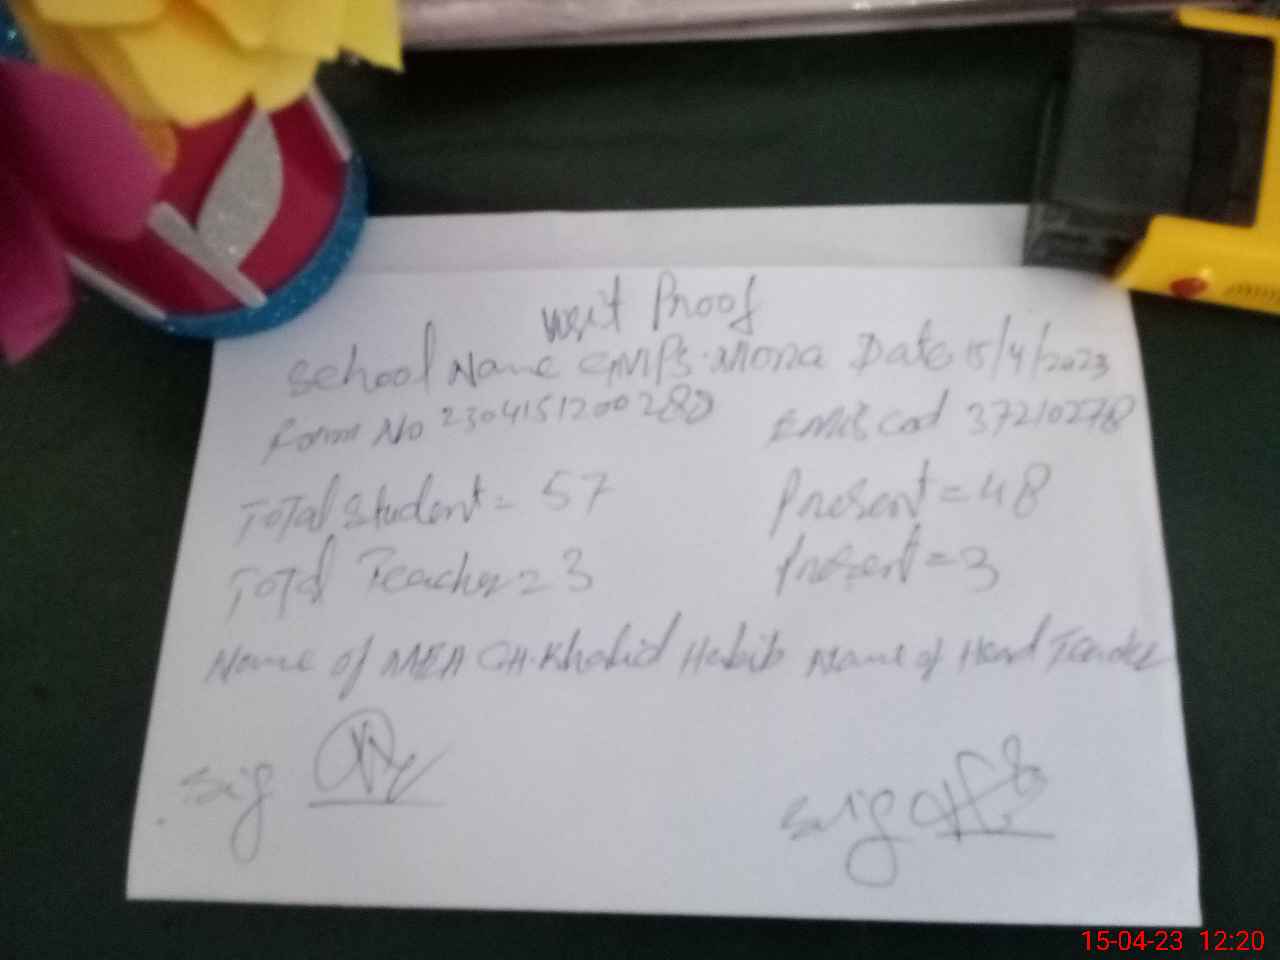 Proof
School Name GMPS. Mona Date 15/4/2023
Form No 2304151200280 EMIS Cod 37210278
Total Student = 57 Present = 48
Total Teacher = 3 Present = 3
Name of MEA CH. Khalid Habib Name of Head Teacher
Sig
Sig
15-04-23 12:20